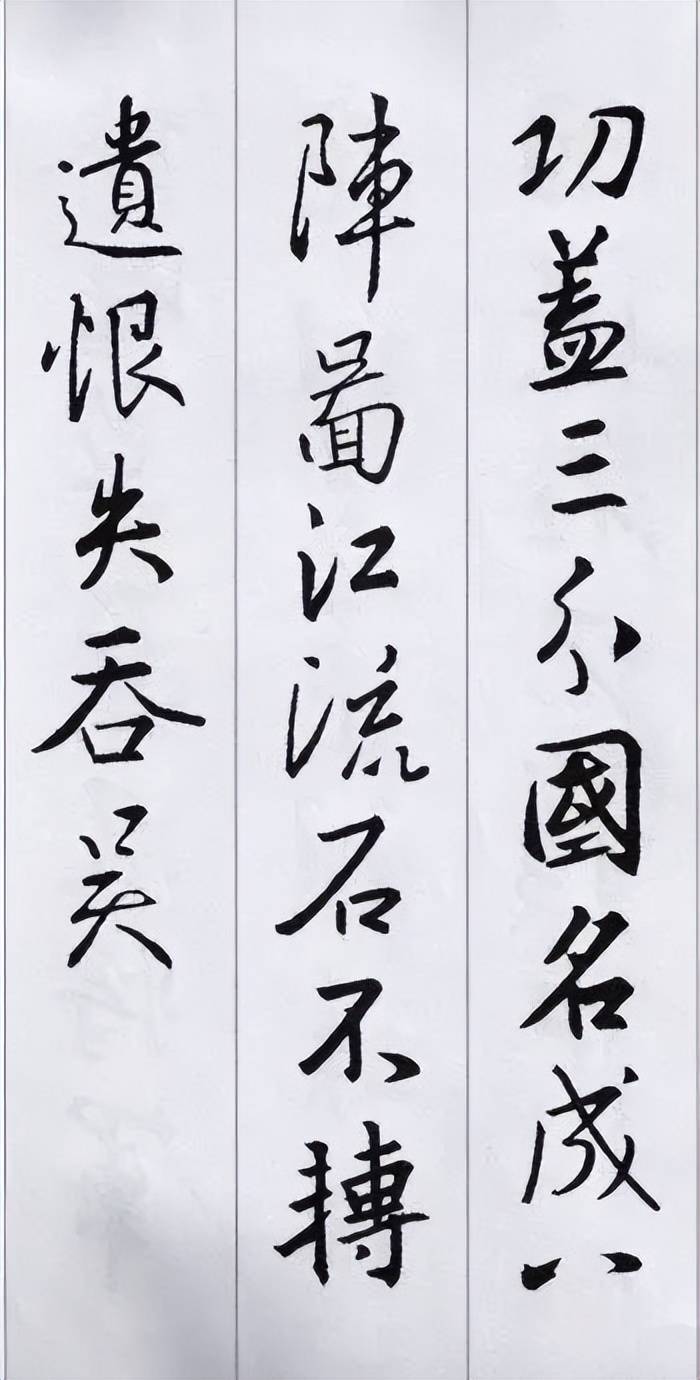 功蓋三分國名成八
陣圖江流石不摶
遺恨失吞吳